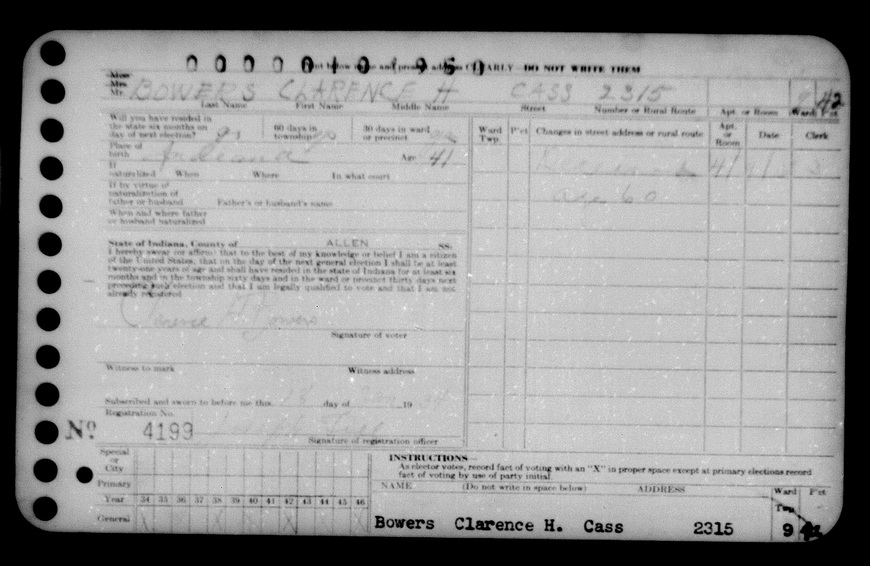 0 0 0 0 0 1 0 1 9 5 0
DO NOT WRITE THEM
Miss
Mrs.
Mr. BOWERS CLARENCE H CASS 2315 9 42
Last Name First Name Middle Name Street Number or Rural Route Apt. or Room Ward P'ct
Will you have resided in
the state six months on
day of next election? yes 60 days in
township? yes 30 days in ward
or precinct yes
Place of
birth Indiana Age 41
If
naturalized When Where In what court
If by virtue of
naturalization of
father or husband Father's or husband's name
When and where father
or husband naturalized
Ward
Twp. P'ct Changes in street address or rural route Apt.
or
Room Date Clerk
State of Indiana, County of ALLEN SS.
I hereby swear (or affirm) that to the best of my knowledge or belief I am a citizen
of the United States, that on the day of the next general election I shall be at least
twenty-one years of age and shall have resided in the state of Indiana for at least six
months and in the township sixty days and in the ward or precinct thirty days next
preceding such election and that I am legally qualified to vote and that I am not
already registered
Clarence H. Bowers
Signature of voter
Witness to mark Witness address
Subscribed and sworn to before me this day of 19
Registration No.
No 4199
Signature of registration officer
Special
or
City
Primary
Year 34 35 36 37 38 39 40 41 42 43 44 45 46
General X X X
INSTRUCTIONS—
As elector votes, record fact of voting with an "X" in proper space except at primary elections record
fact of voting by use of party initial.
NAME (Do not write in space below) ADDRESS Ward
Twp P'ct
Bowers Clarence H. Cass 2315 9